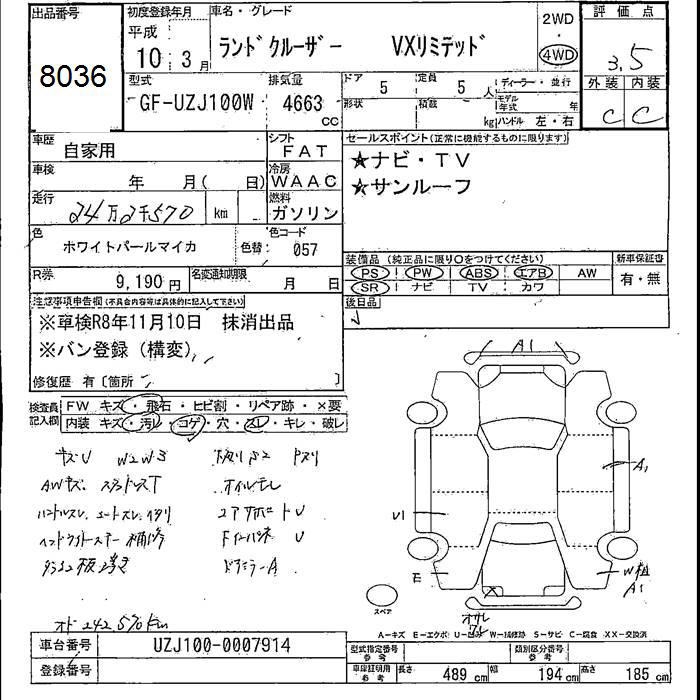 出品番号
8036
初度登録年月
平成
10 3月
車名・グレード
ランドクルーザー VXリミテッド
2WD
・
4WD
評価点
3.5
外装 内装
C C
型式
GF-UZJ100W
排気量
4663
cc
ドア 5
形状
定員 5 人
積載 kg
ディーラー・並行
モデル年式 年
ハンドル 左・右
車歴
自家用
シフト
FAT
車検
年 月( 日)
冷房
WAAC
走行
24万2千570 km
燃料
ガソリン
色
ホワイトパールマイカ
色替:
色コード
057
R券
9,190円
名変通知期限
月 日
セールスポイント(正常に機能するものに限ります)
★ナビ・TV
★サンルーフ
装備品(純正品に限り○をつけてください)
PS PW ABS エアB AW
SR ナビ TV カワ
新車保証書
有・無
後日品
注意事項申告欄(不具合内容等は具体的に記入して下さい)
※車検R8年11月10日 抹消出品
※バン登録(構変)
修復歴 有〔箇所 〕
検査員記入欄
FW キズ・飛石・ヒビ割・リペア跡・×要
内装 キズ・汚・コゲ・穴・スレ・キレ・破レ
キズU W2W3
AWキズ
オイルモレ
ヘッドライトスチー 補修
ドアミラーA
オド 242,570km
A1
A1
U1
E
スペア
A-キズ E-エクボ U-凹み W-補修跡 S-サビ C-腐食 XX-交換済
車台番号
UZJ100-0007914
登録番号
型式指定番号
参考
類別区分番号
参考
車庫証明用
参考
長さ 489 cm 幅 194 cm 高さ 185 cm